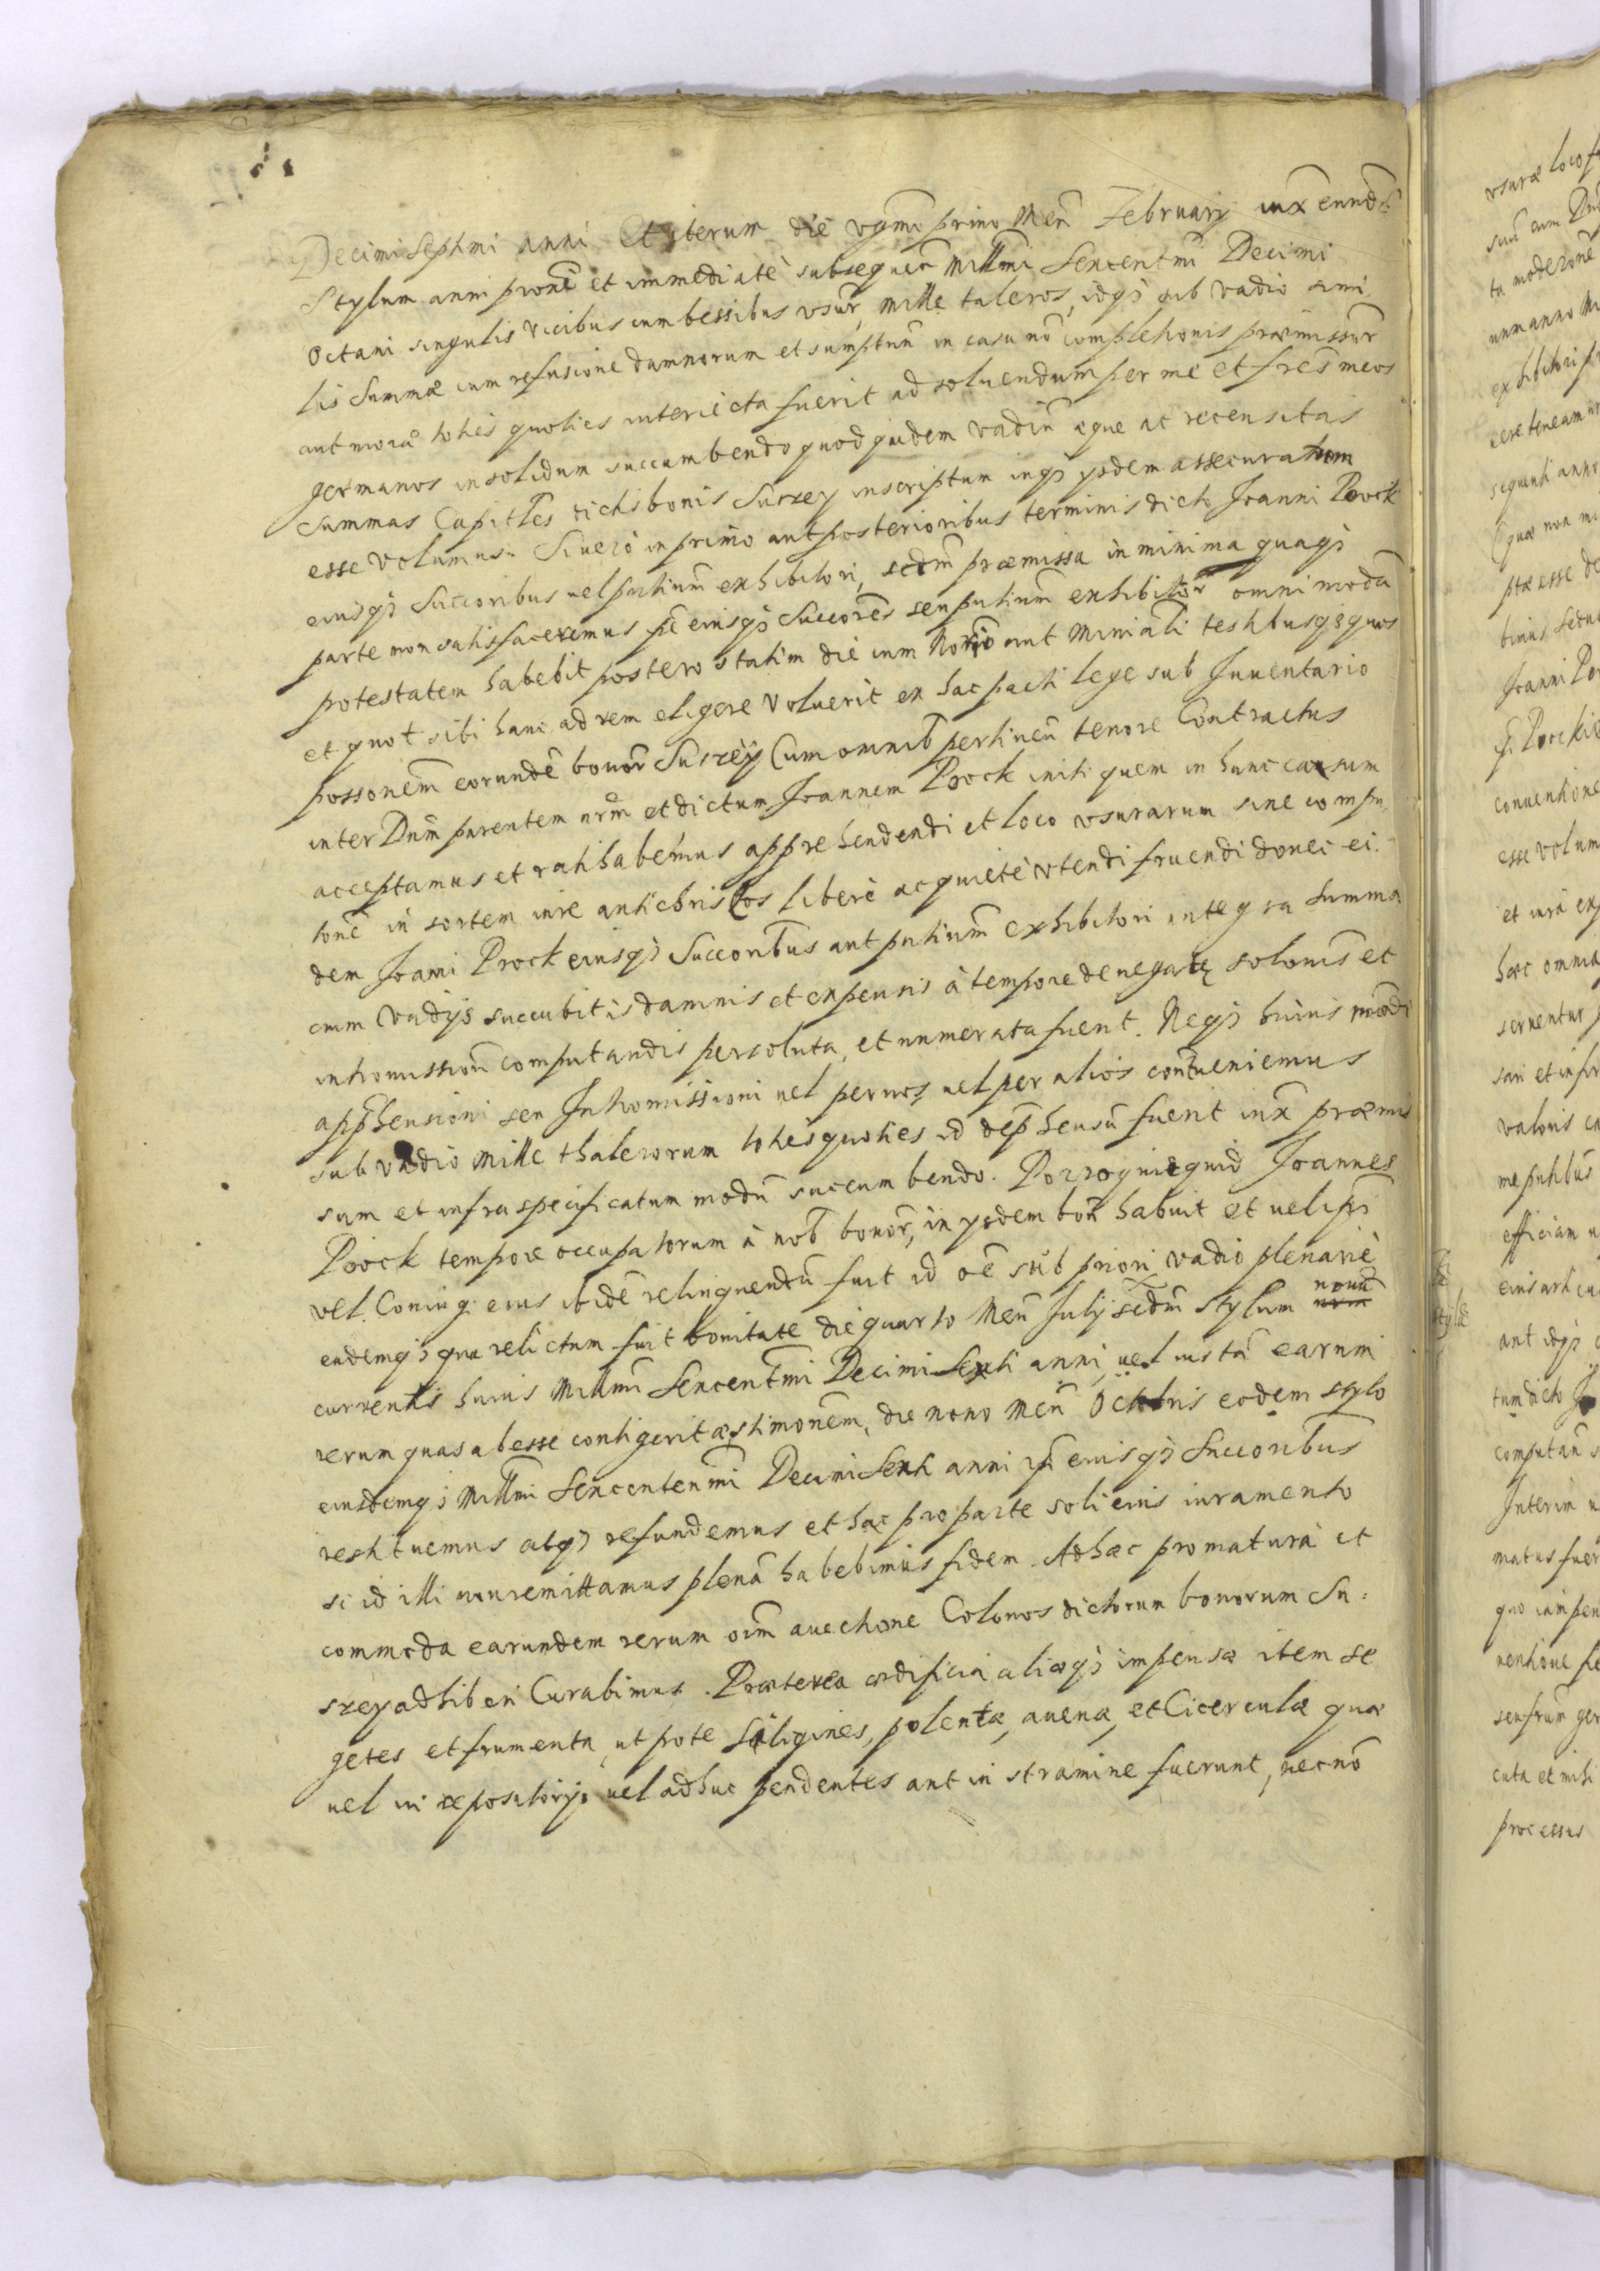 Decimi Septimi anni Et iterum die vgmi primo Men Februarij iuxa eund
Stylum anni pronè et immediatè subsequen Millmi Sexcentmi Decimi
Octaui singulis vicibus cum bessibus vsur, mille taleros, idqȝ sub vadio simi
lis Summæ cum refusione damnorum et sumptuū in casu nō completionis præmissor
aut moræ toties quoties interiecta fuerit ad soluendum per me et fres meos
germanos in solidum succumbendo quod quidem vadiū æque ac recensitas
summas Capitles dictis bonis Surzey inscriptum inqȝ ysdem assecuratum
esse volumus. Si uerò in primo aut posterioribus terminis dicto Joanni Poock
eiusqȝ Succoribus uel pntium exhibitori, scdm præmissa in minima quaqȝ
parte non satisfaceremus pē eiusqȝ Succores seu pntium exhibitor omni modā
potestatem habebit postero statim die cum Norio aut Miniali testibusqȝ quos
et quot sibi hanc ad rem eligere voluerit ex hac pacti lege sub Inuentario
possonem eorundē bonor Surzey Cum omnib pertinen tenore Contractus
inter Dnm parentem nrm et dictum Joannem Poock initi quem in hunc casum
acceptamus et ratihabemus apprehendendi et loco vsurarum sine compu
tone in sortem iure antichris[t]os liberè ac quietè vtendi fruendi donec ei
dem Joanni Poock eiusqȝ Succoribus aut pntium exhibitori integra summa
cum vadijs succubitis damnis et expensis à tempore denegatę solonis et
intromission computandis persoluta, et numerata fuerit. Neqȝ huius modi
apphensioni seu Intromissioni uel per nos uel per alios contueniemus
sub vadio mille thalerorum toties quoties id dephensū fuerit iuxa præmis
sum et infra specificatum modū succumbendo. Porro quicquid Joannes
Poock tempore occupatorum à nob bonor, in ysdem bon habuit et uel ipsi
vel Coniugi eius ibidē relinquendū fuit id oē sub priori vadio plenariè
eademqȝ qua relictum fuit bonitate die quarto Men Julij scdm stylum nouū
currentis huius Millmi Sexcentmi Decimi Sexti anni, uel iustā earum
rerum quas abesse contigerit æstimonem, die nono Men Octobris eodem stylo
eiusdemqȝ Millmi Sexcentenmi Decimi Sexti anni ipi eiusqȝ Succoribus
restituemus atqȝ refundemus et hac pro parte soli eius iuramento
si id illi non remittamus plenā habebimus fidem. Ad hæc pro matura et
commoda earundem rerum oim auectione Colonos dictorum bonorum Su:
szey adhiberi Curabimus. Præterea ædificia aliæqȝ impensæ item se
getes et frumenta, utpote Siligines, polentæ, auenæ, et Cicerculæ quæ
uel in repositorijs uel adhuc pendentes aut in stramine fuerunt, necnō
vsuræ loco
suū cum
ta moderone
unm anno
exhibitori
cere teneamur
sequenti anno
quæ non
ptæ esse
Joanni
conuentione
esse volum
et iura
hæc omnia
seruentur
sari et
valoris
me pntibus
efficiam
aut idqȝ
tum dicto
computan
Interim
matus fuer
quo
uentione
seu frum ger
cuta et mihi
processus